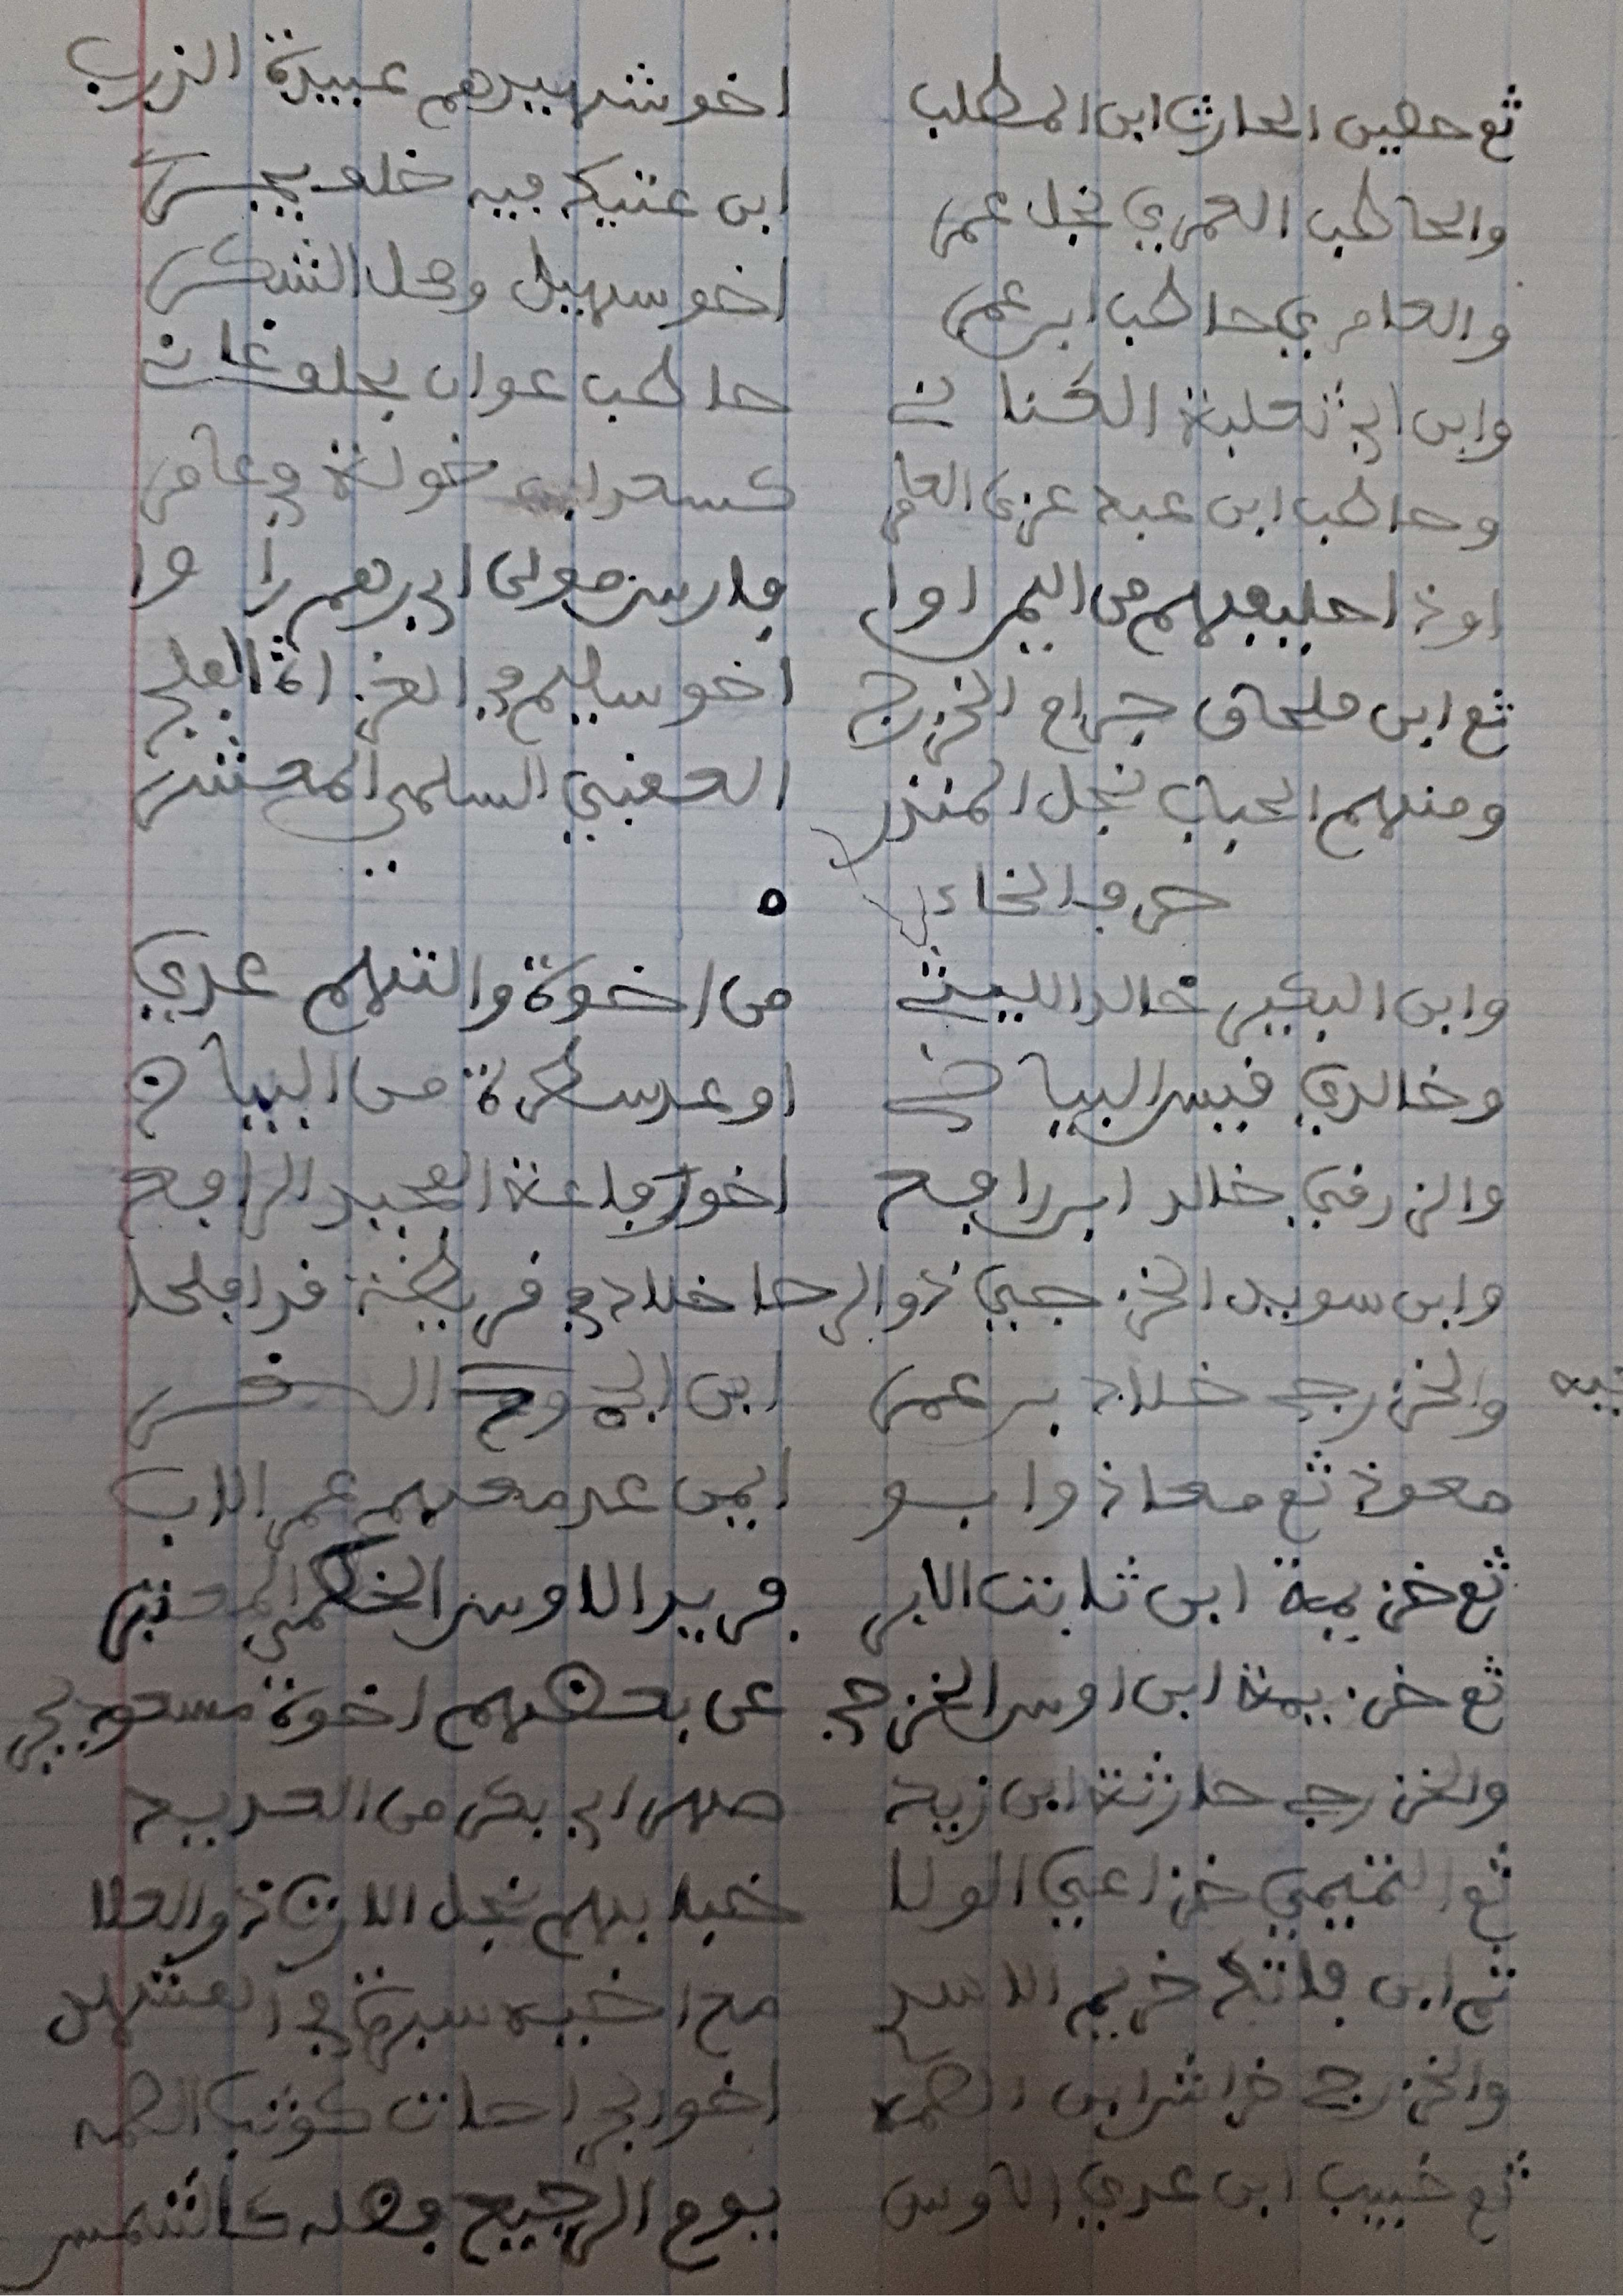 ثم حصين الحارث ابن المطلب اخو شهيدهم عبيدة الزرب
والحاطب العمري نجل عمر ابن عتيك فيه خلف يجري
والعامري حاطب ابن عمر اخو سهيل وهل الشكر
وابن ابي ثعلبة الكناني حاطب عوان بخلف غان
وحاطب ابن عبد عزى العامر كسعد ابن خولة في عامر
او ذا حليفهم من اليمن اوا فارس مولى ابي رهم را وا
ثم ابن ملحان حرام الخزرج اخو سليم في الغزاة الفلج
ومنهم الحباب نجل المنذر العقبي السلمي المعشر
حرف الخاء
وابن البكير خالد الليثي من اخوة والتهم عدي
وخالدي قيس البياضي او عد سطرة من البياض
والزرقي خالد ابن رافع اخو رفاعة العجيد الرافع
وابن سويد الخزرجي ذو الرحا خلاد في قريظة قد افلحا
والخزرجي خلاد بن عمر ابن الجموح السفر
معوذ ثم معاذ وابو ايمن عد معهم عمر الاب
ثم خزيمة ابن ثابت الابر فريد الاوس الخطمي المعتبر
ثم خزيمة ابن اوس الخزرجي عن بعضهم اخوة مسعود يجي
والخزرجي حارثة ابن زيد صهر ابي بكر من العديد
ثم التميمي خزاعي الولا خبابهم نجل الارت ذو العلا
ثم ابن فاتك خريم الاسد مع اخيه سبرة في المشهد
والخزرجي خراش ابن الصمه اخو الجراحات كوثب الصمه
ثم خبيب ابن عدي الاوس يوم الرجيع فضله كالشمس